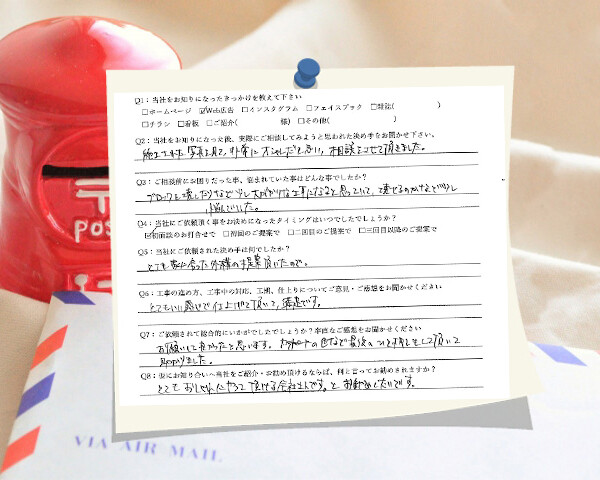 Q1：当社をお知りになったきっかけを教えて下さい
□ホームページ ☑Web広告 □インスタグラム □フェイスブック □雑誌( )
□チラシ □看板 □ご紹介( 様) □その他( )
Q2：当社をお知りになった後、実際にご相談してみようと思われた決め手をお聞かせ下さい。
写真を見て、非常にオシャレだと思い、相談させて頂きました。
Q3：ご相談前にお困りだった事、悩まれていた事はどんな事でしたか？
ブロックを壊したりなど少し大がかりな工事になると思っていて、壊せるのかなど少し
悩んでいました。
Q4：当社にご依頼頂く事をお決めになったタイミングはいつでしたでしょうか？
☑初面談のお打合せで □初回のご提案で □二回目のご提案で □三回目以降のご提案で
Q5：当社にご依頼された決め手は何でしたか？
とても家に合った外構の提案頂いたので。
Q6：工事の進め方、工事中の対応、工期、仕上りについてご意見・ご感想をお聞かせください
とてもいい感じで仕上げて頂いて、満足です。
Q7：ご依頼されて総合的にいかがでしたでしょうか？率直なご感想をお聞かせください
お願いして良かったと思います。カーポートの色など最後の して頂いて
助かりました。
Q8：仮にお知り合いへ当社をご紹介・お勧め頂けるならば、何と言ってお勧めされますか？
とてもおしゃれにやって頂ける会社さんです。とお勧めしたいです。
POS
VIA AIR MAIL